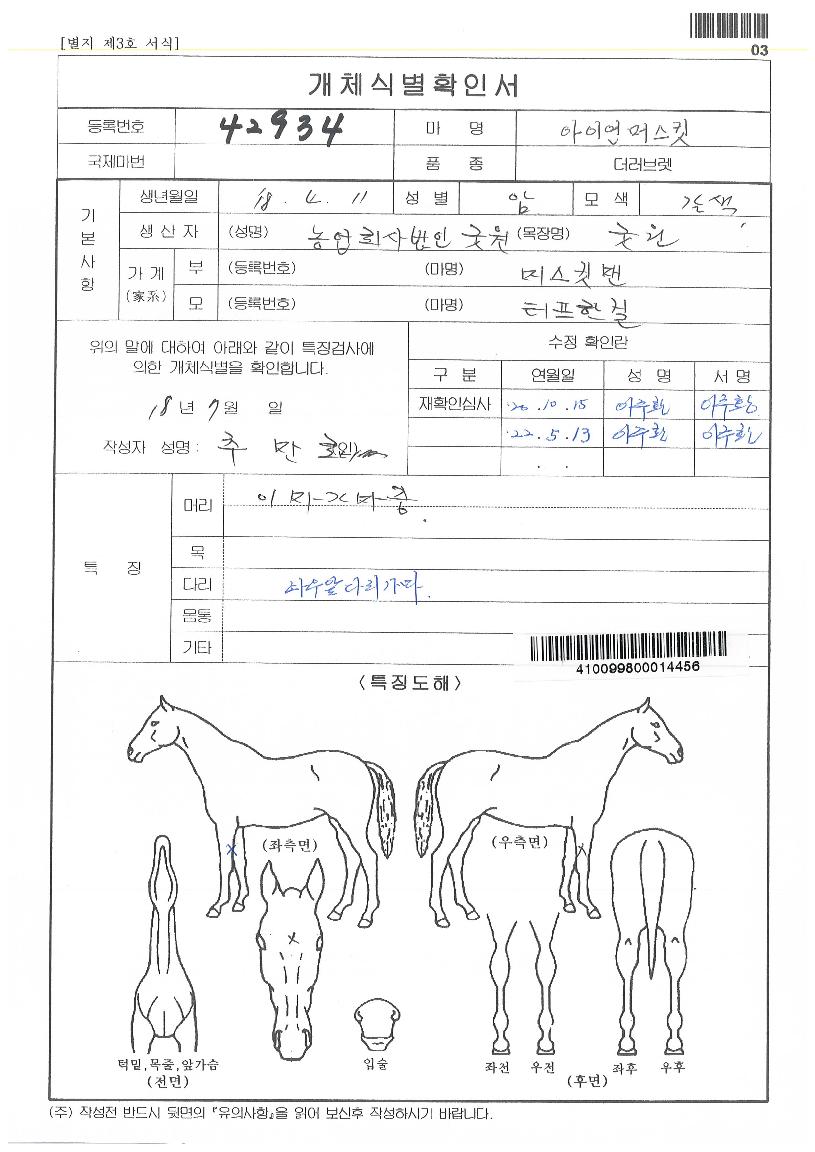 [별지 제3호 서식]
03
개체식별확인서
등록번호 42934 마 명 아이언머스킷
국제마번 품 종 더러브렛
기본사항
생년월일 18. 4. 11 성 별 암 모 색 갈색
생 산 자 (성명) 농업회사법인 굿윈 (목장명) 굿윈
가 계 (家系)
부 (등록번호) (마명) 머스킷맨
모 (등록번호) (마명) 터프한걸
위의 말에 대하여 아래와 같이 특징검사에
의한 개체식별을 확인합니다.
18 년 7 월 일
작성자 성명 : 추 만
수정 확인란
구 분 연월일 성 명 서 명
재확인심사 '20 . 10 . 15
'22 . 5 . 13
. .
특 징
머리 이마가마중
목
다리 좌우앞다리가마.
몸통
기타
410099800014456
<특징도해>
(좌측면) (우측면)
턱밑,목줄,앞가슴
(전면)
입술
좌전 우전 좌후 우후
(후면)
(주) 작성전 반드시 뒷면의 『유의사항』을 읽어 보신후 작성하시기 바랍니다.